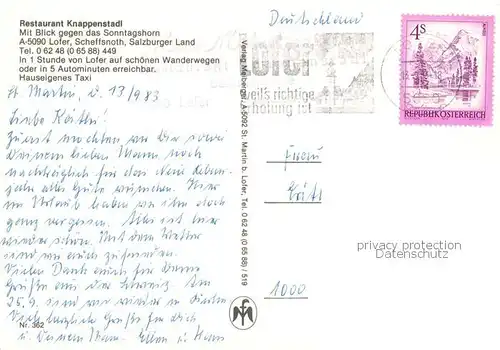 Restaurant Knappenstadl
Mit Blick gegen das Sonntagshorn
A-5090 Lofer, Scheffsnoth, Salzburger Land
Tel. 0 62 48 (0 65 88) 449
In 1 Stunde von Lofer auf schönen Wanderwegen
oder in 5 Autominuten erreichbar.
Hauseigenes Taxi
St. Martin, 13/9 83
Liebe Käthi!
Zuerst möchten wir Dir sowie
Deinem lieben Mann noch
nachträglich für das Neue Lebens-
jahr alles Gute wünschen. Hier
im Urlaub haben wir ihn doch
ganz vergessen. Alles ist hier
wieder schön. Mit dem Wetter
sind wir auch zufrieden.
Vielen Dank auch für Deine
Grüße aus der Schweiz. Am
25.9. sind wir wieder in Berlin
Viele herzliche Grüße für Dich
u Deinem Mann. Ellen u Hans
Nr. 362
Verlag Melbergér, A-5092 St. Martin b. Lofer, Tel. 0 62 48 (0 65 88) / 519
Deutschland
Lofer
weil's richtige
Erholung ist
4S
REPUBLIK ÖSTERREICH
Frau
1000
privacy protection
Datenschutz